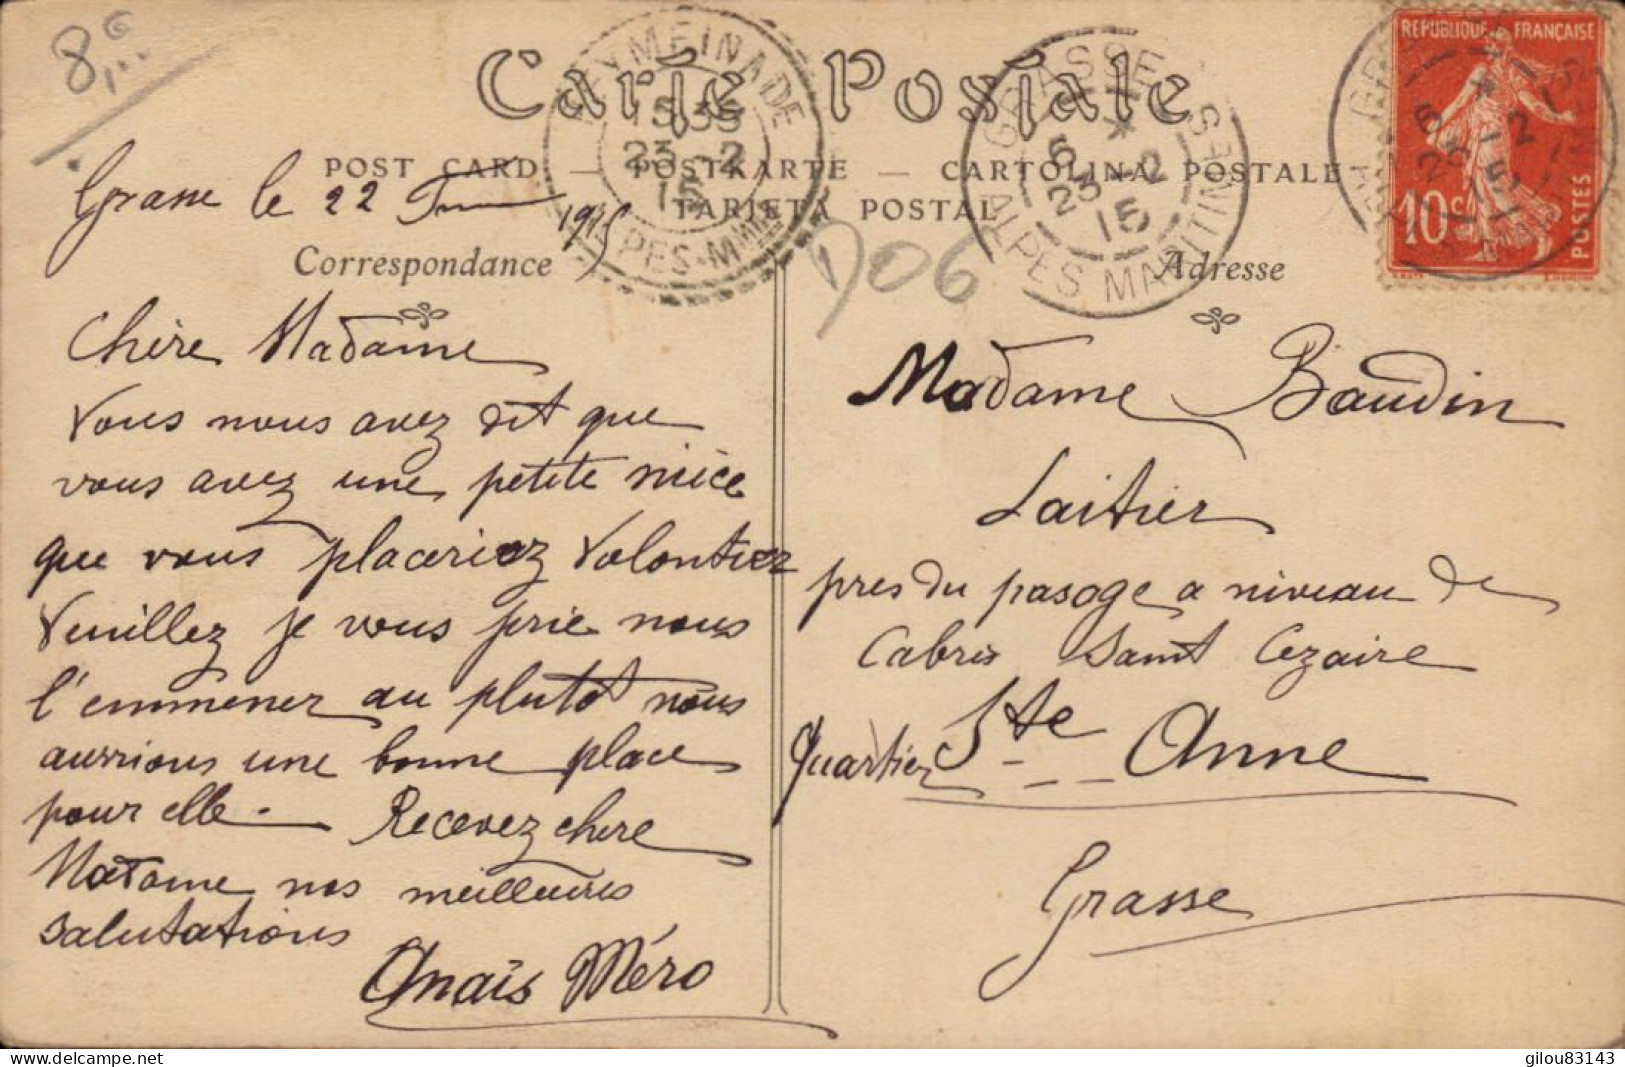 8,
Carte Postale
POST CARD — POSTKARTE — CARTOLINA POSTALE
TARJETA POSTAL
PEYMEINADE
15 35
23 - 2
15
ALPES-MMES
GRASSE
6 *
23 - 2
15
ALPES MARITIMES
REPUBLIQUE FRANÇAISE
10c
POSTES
Grasse le 22 1915
D06
Correspondance
Chère Madame
Vous nous avez dit que
vous avez une petite nièce
que vous placeriez volontiez
Veuillez je vous prie nous
l'emmener au plutôt nous
aurrions une bonne place
pour elle. Recevez chere
Madame nos meilleures
salutations
Anaïs Méro
Adresse
Madame Baudin
Laitier
pres du pasage a niveau de
Cabris Saint Cezaire
Quartier Ste Anne
Grasse
gilou83143